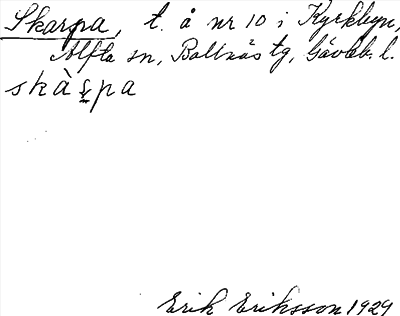 Skarpa, t. å nr 10 i Kyrkbyn,
Alfta sn, Bollnäs tg, Gävleb. l.
skàs̭pa
Erik Eriksson 1929